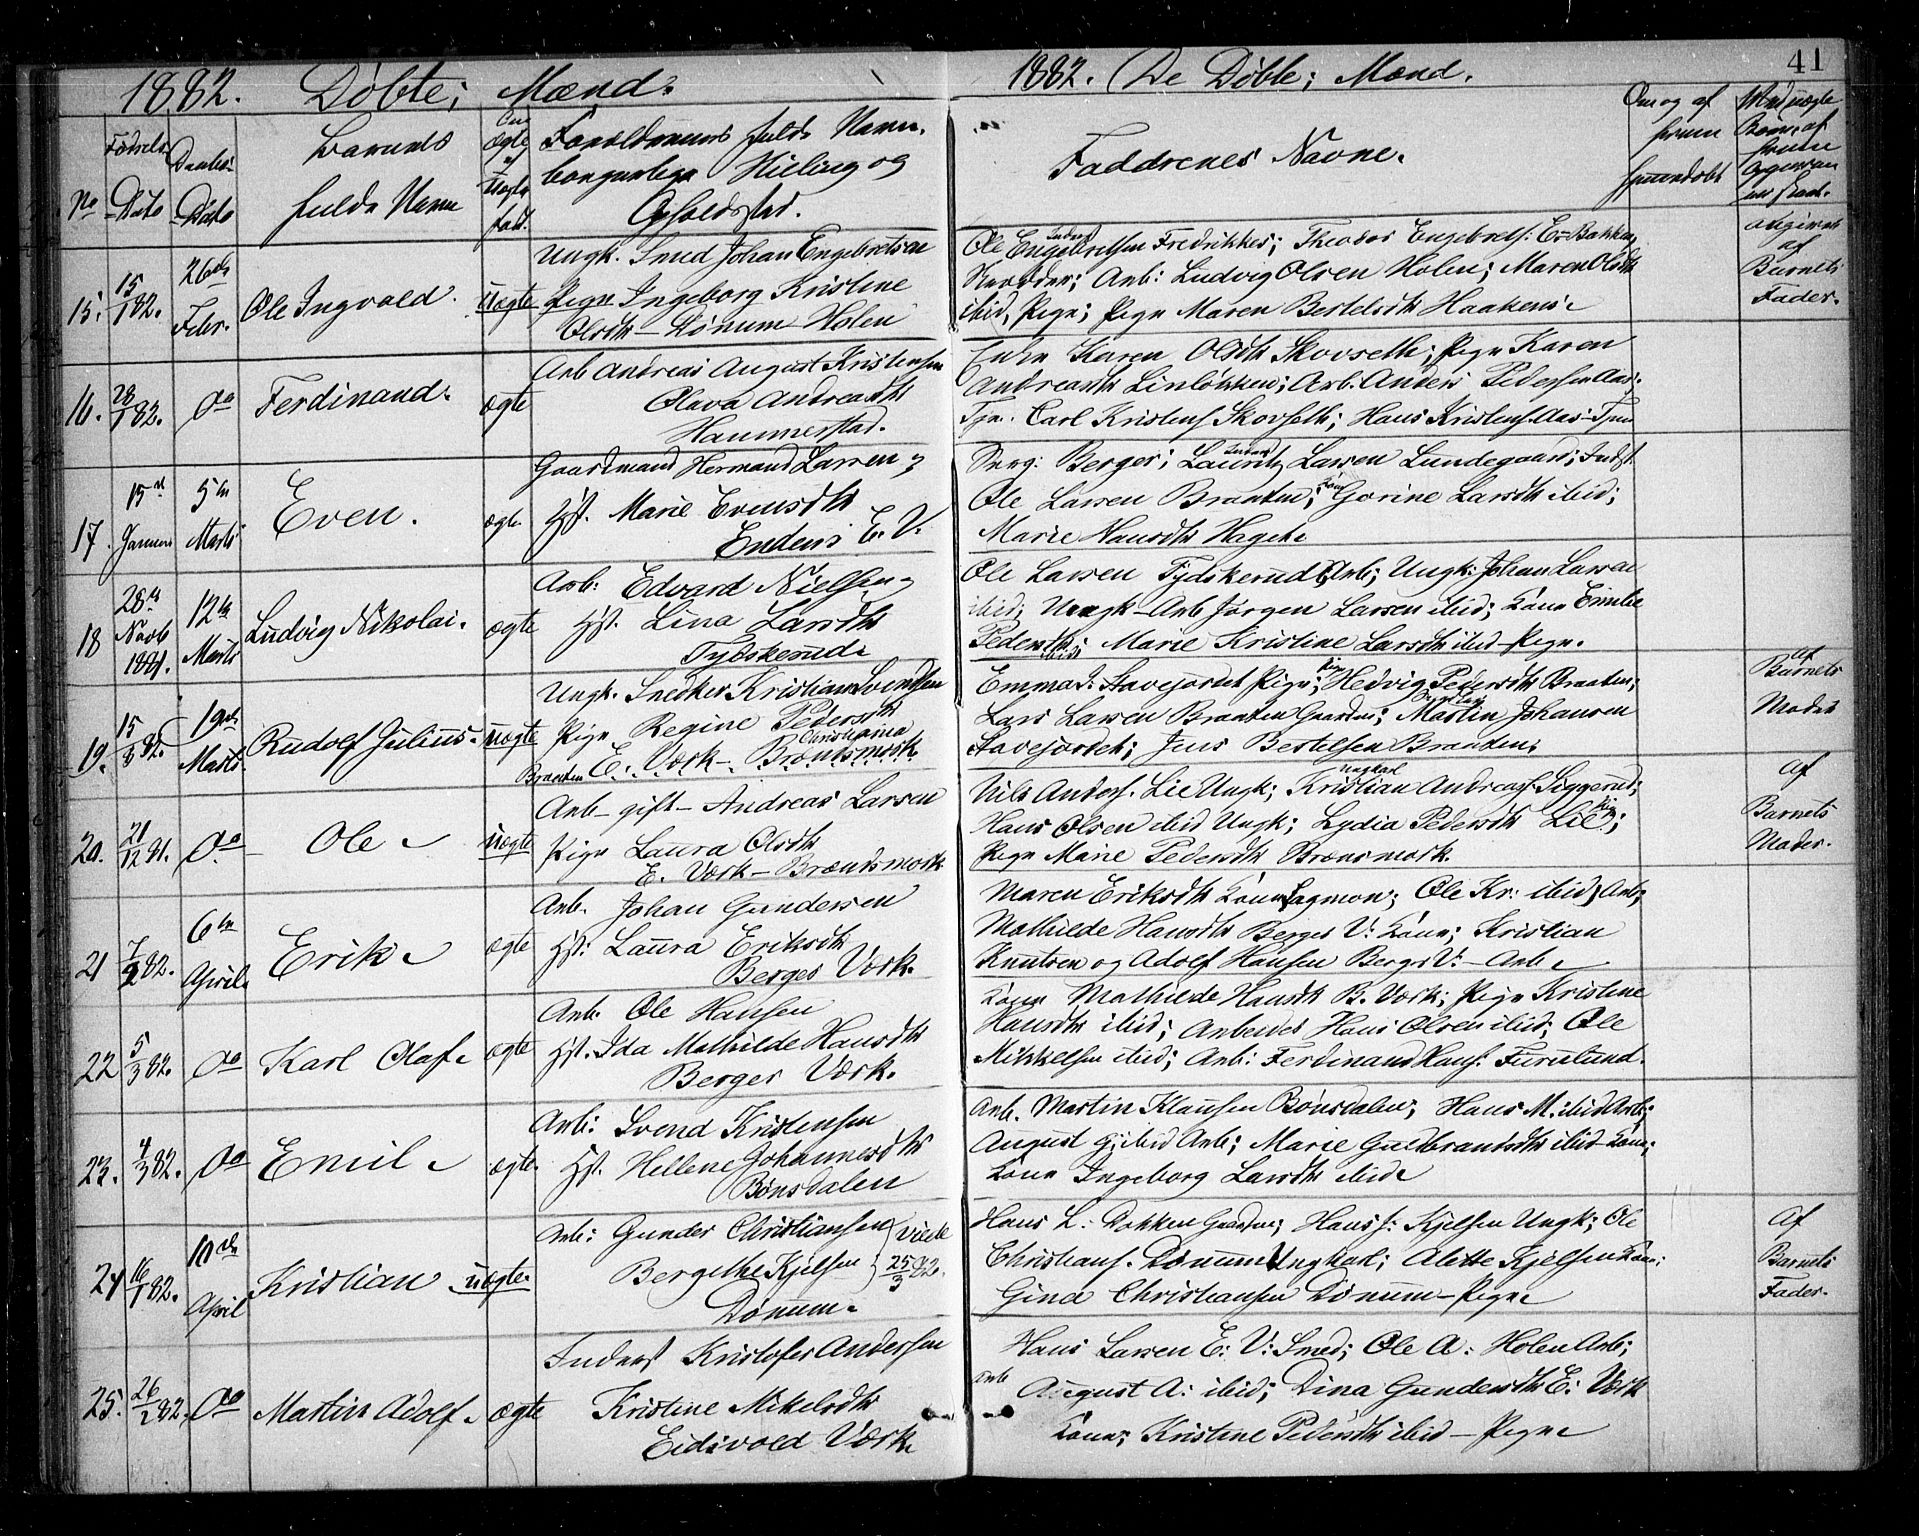 1882. Døbte; Mænd.
1882. De Døbte; Mænd.
41
No
Fødsels-
Dato
Daabs-
Dato
Barnets
fulde Navn
Om
ægte
el
uægte
født.
Forældrenes fulde Navn,
borgerlige Stilling og
Opholdsted.
Faddrenes Navne.
Om og af
hvem
hjemmedøbt
Ved uægte
Børn: af
hvem
Opgivan
15.
15/1 82.
26de
Febr.
Ole Ingvald.
uægte
Ungk. Smed Johan Engebretsen
Pige Ingeborg Kristine
Olsdth - Dønum Holen
Ole Engebretsen Fredrikkes; Theodor Engebrets:
Anb: Ludvig Olsen Holen; Maren Olsdth
ibid, Pige; Pige Maren Bertelsdth Haakens
af
Barnets
Fader.
16.
28/1 82.
do
Ferdinand.
ægte
Arb Andreas August Kristensen
Olava Andreasdth
Hammerstad.
Enke Karen Olsdth Skovseth; Pige Karen
Andreasdth Linløkken; Arb: Anders Pedersen Aas;
Carl Kristens Skovseth; Hans Kristens Aas-
17.
15de
Januar
5te
Marts
Even.
ægte
Gaardmand Hermand Larsen og
Hst. Marie Evensdth
Endens E. V.
Berger; Lauritz Larsen Lundegaard; Indst.
Ole Larsen Braaten; Gorine Larsdth ibid;
Marie Hansdth Hagen
18
28de
Novb
1881.
12te
Marts
Ludvig Nikolai.
ægte
Arb: Edvard Nielsen og
Hst. Lina Larsdth
Tydskerud
Ole Larsen Tydskerud Arb; Ungk: Johan Larsen
ibid; Ungk-Arb Jørgen Larsen ibid; Kone Emilie
Pedersdth ibid; Marie Kristine Larsdth ibid-Pige.
19.
15/3 82.
19de
Marts.
Rudolf Julius.
uægte
Ungk. Snedker Kristian Svendsen
Pige Regine Pedersdth
Christiania
Braaten E. Værk - Brøndsmork
Emma J: Stavejordet Pige; Pige Hedvig Pedersdth Braaten;
Lars Larsen Braaten Gaardm; Martin Johansen
Stavejordet; Jens Bertelsen Braaten.
af
Barnets
Moder
20.
21/12 81.
do
Ole
uægte
Arb-gift- Andreas Larsen
Pige Laura Olsdth
E. Værk - Brændsmork
Nils Anders. Lie Ungk; Ungkarl Kristian Andreass. Siggerud;
Hans Olsen ibid Ungk; Lydia Pedersdth Lie Pige;
Pige Marie Pedersdth Brænsmork.
Af
Barnets
Moder.
21
7/2 82.
6te
April
Erik
ægte
Arb. Johan Gundersen
Hst: Laura Eriksdth
Berger Værk.
Maren Eriksdth Kone Lagmon; Ole Kr: ibid Arb;
Mathilde Hansdth Berges V: Kone; Kristian
Knutsen og Adolf Hansen Bergs V: - Arb
22
5/3 82.
do
Karl Olaf
ægte
Arb. Ole Hansen
Hst. Ida Mathilde Hansdth
Berger Værk.
Kone Mathilde Hansdth B. Værk; Pige Kristine
Hansdth ibid; Arbeider Hans Olsen ibid; Ole
Mikkelsen ibid; Arb: Ferdinand Hans: Furulund.
23.
4/3 82.
do
Emil
ægte.
Arb: Svend Kristensen
Hst. Hellene Johannesdth
Bønsdalen
Arb. Martin Klausen Bønsdalen; Hans M. ibid Arb;
August G: ibid Arb; Marie Guldbrandsdth ibid-Kone;
Kone Ingeborg Larsdth ibid
24
16/1 82.
10de
April
Kristian
uægte.
Arb: Gunder Christiansen } viede
Bergithe Kjelsen } 25/3 82.
Dønum.
Hans L: Dokken Gaardm; Hans J: Kjelsen Ungk; Ole
Christians. Dønum Ungkarl; Alette Kjelsen Kone;
Gina Christiansen Dønum-Pige
Af
Barnets
Fader.
25.
26/2 82.
do
Martin Adolf
ægte
Inderst Kristofer Andersen
Kristine Mikelsdth
Eidsvold Værk
Hans Larsen E: V: Smed; Ole A: Holen Arb;
Arb August A: ibid; Dina Gundersdth E: Værk
Kone; Kristine Pedersdth ibid - Pige